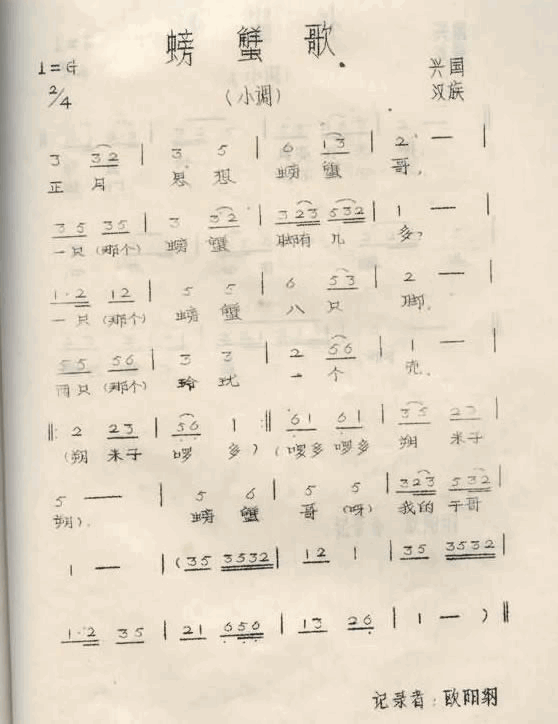 螃蟹歌
1=G 兴国
2/4 (小调) 汉族
3 32 | 3 5 | 6 13 | 2 — |
正月 思想 螃蟹 哥,
35 35 | 3 32 | 323 532 | 1 — |
一只(那个) 螃蟹 脚有几 多?
1·2 12 | 5 5 | 6 53 | 2 — |
一只(那个) 螃蟹 八只 脚,
55 56 | 3 3 | 2 56 | 1 — |
两只(那个) 一个 壳,
‖: 2 23 | 56 1 :‖ 61 61 | 35 23 |
(朔米子 啰多) (啰多啰多 朔米子
5 — | 5 6 | 5 5 | 323 532 |
朔). 螃蟹 哥(呀) 我的干哥
1 — | (35 3532 | 12 1 | 35 3532 |
1·2 35 | 21 656 | 13 26 | 1 — ) ‖
记录者:欧阳纲